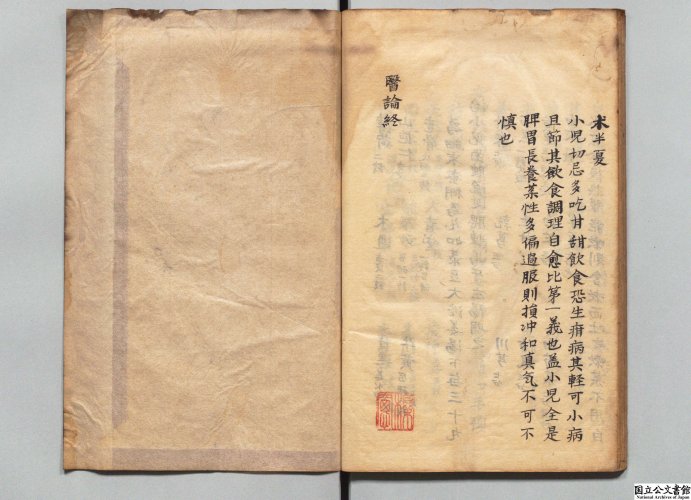 朮半夏
小児切忌多吃甘甜飲食恐生疳病其軽可小病
且節其飲食調理自愈比第一義也盖小児全是
脾胃長養菜性多偏過服則損冲和真気不可不
慎也
醫論終
国立公文書館
National Archives of Japan